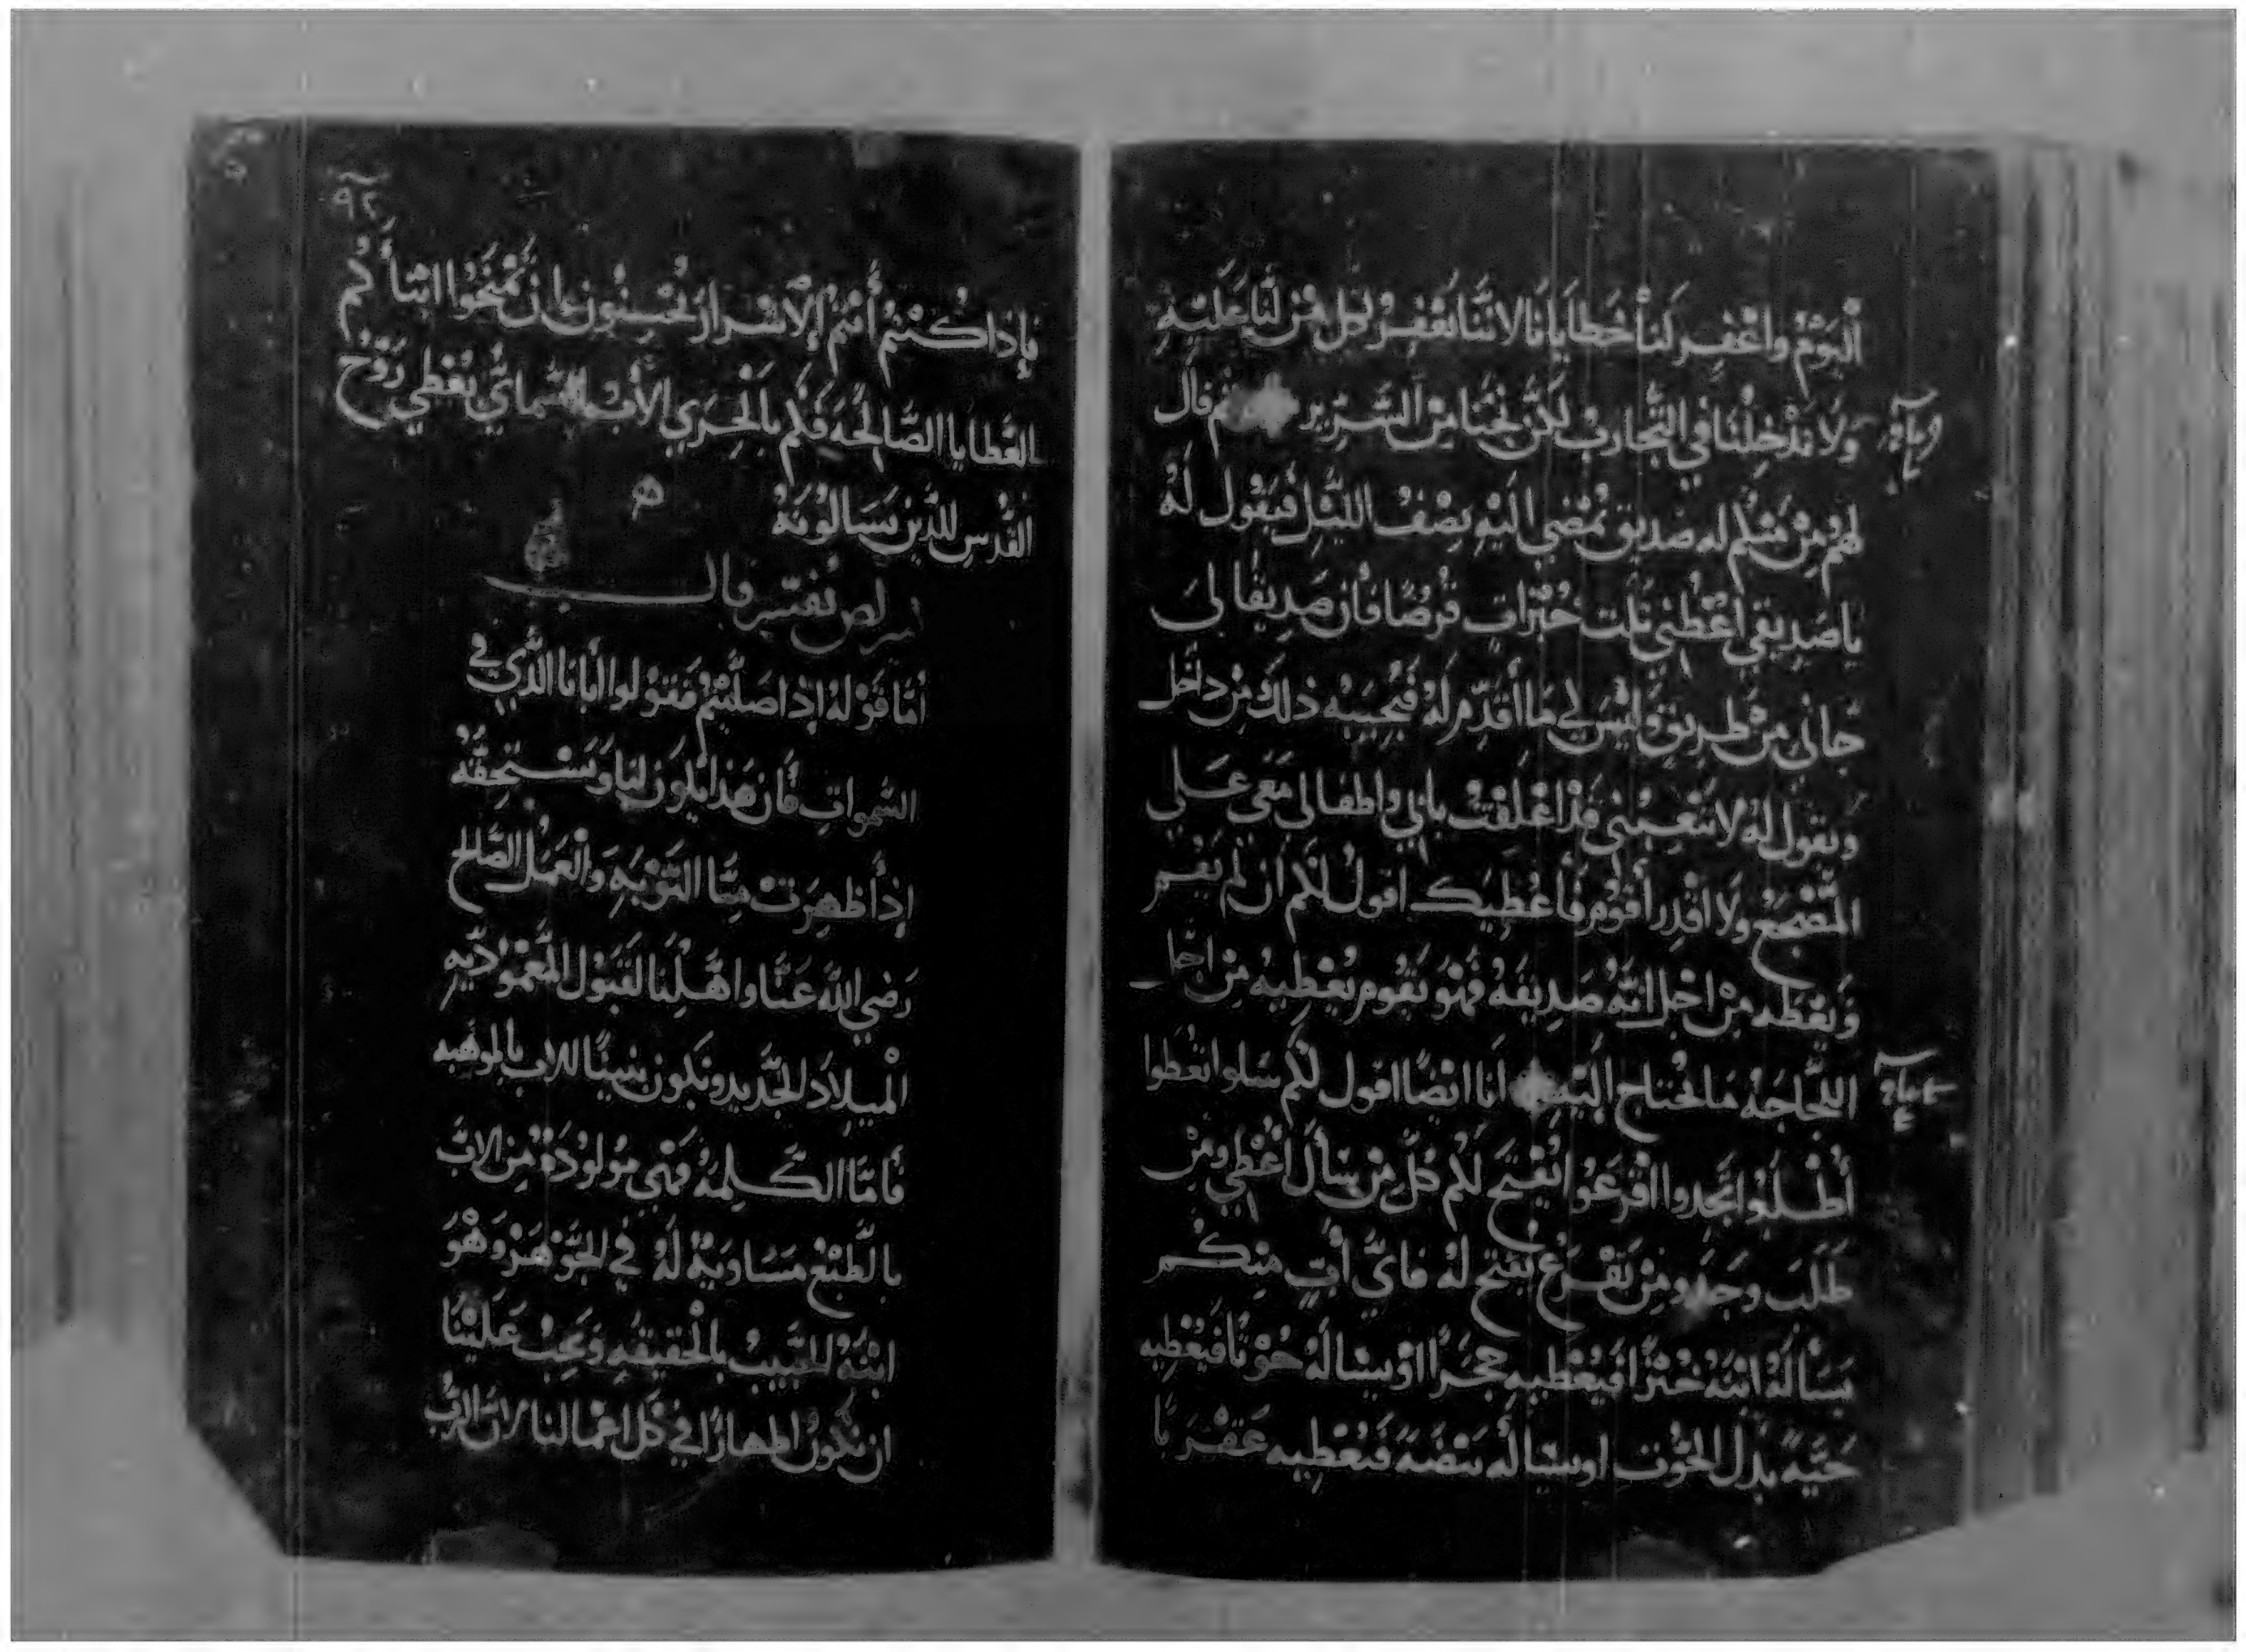 أليَوْمْ واغْفِر لَنا خَطايَانَا لاننا نَغْفِرُ لِكل مَن لَنا عَلَيْهِ
وَلا تدْخِلْنَا في التجاربْ لكن نجّنا مِن الشرير قال
لهُمْ مِنْ مِنكُم له صديق يمضي اليْهِ نِصْفُ الليْلِ فيَقول لهُ
يا صَدِيقي اعْطني ثلت خُبْزاتٍ قرْضًا فأن صَدِيقًا لي
جاني مِنْ طريقٍ وَليْسَ لي مَا أقدِّم لهُ فَيُجيبَه ذلك مِن داخل
ويقول له لا تتعبني قد اغلقت بابي واطفالي مَعَي عَلي
المضجع ولا اقدِر أقوُم فأعْطِيَك اقول لكم ان لم يَقم
وَيعْطه مِنْ اجْل انهُ صَدِيقهُ فَهْوَ يَقُوم يُعْطيهُ مِنْ اجل
اللجَاجَهُ مَا يحْتاج اليْه أنا ايْضًا اقول لكم سَلوا تعْطوا
أُطْلبُوا تجدوا اقرعَوُا يفْتح لكم كلّ مَنْ سَألَ أُعْطي ومن
طَلَبَ وَجَد ومِنْ يَقْرَعْ يفتح لهُ فأيّ أبٍ مِنكُم
يَسَألهُ ابْنَهُ خُبْزًا فَيُعْطيهِ حجَرًا اوْ يسَالهُ حُوْتًا فَيُعْطِيه
حَيَّه بدَل الحُوت او يسَالهُ بيْضَهَ فَيُعْطِيه عَقْرَبًا
٩٢
فإذا كُنتمُ أنتم الأشرار تُحسِنُون ان تمْنَحُوا ابنأكُم
العَطايا الصَّالِحَه فَكم بالحَري الأب السَّمائيُّ يُعْطي رُوْح
القُدْس للذين يَسَالوُنهُ ه
يُفسّر قالـ
أمّا قوْلهُ إذا صَلّيْتمُ فَقوُلوا أبانا الذي في
السّموات فأن هَذا يكون لنا وَنسْتحِقّهُ
إذا ظهرَت مِنّا التوْبَه وَالعَمَل الصَّالح
رَضي الله عَنّا واهّلنا لقَبوُل المعْمُوديّه
الميلاد الجَديد ونكون بنينًا للاب بالموهبه
فأمّا الكَلِمَهُ فَهْيَ مَولوُدَة مِن الاب
بالطبْع مسَاويَهُ لَهُ في الجَوْهَر وَهْوَ
ابْنُهُ الحَبيبُ بالحقيقهِ وَيجِبُ عَليْنا
ان نكون اطهارًا في كل اعْمالنا لان الاب